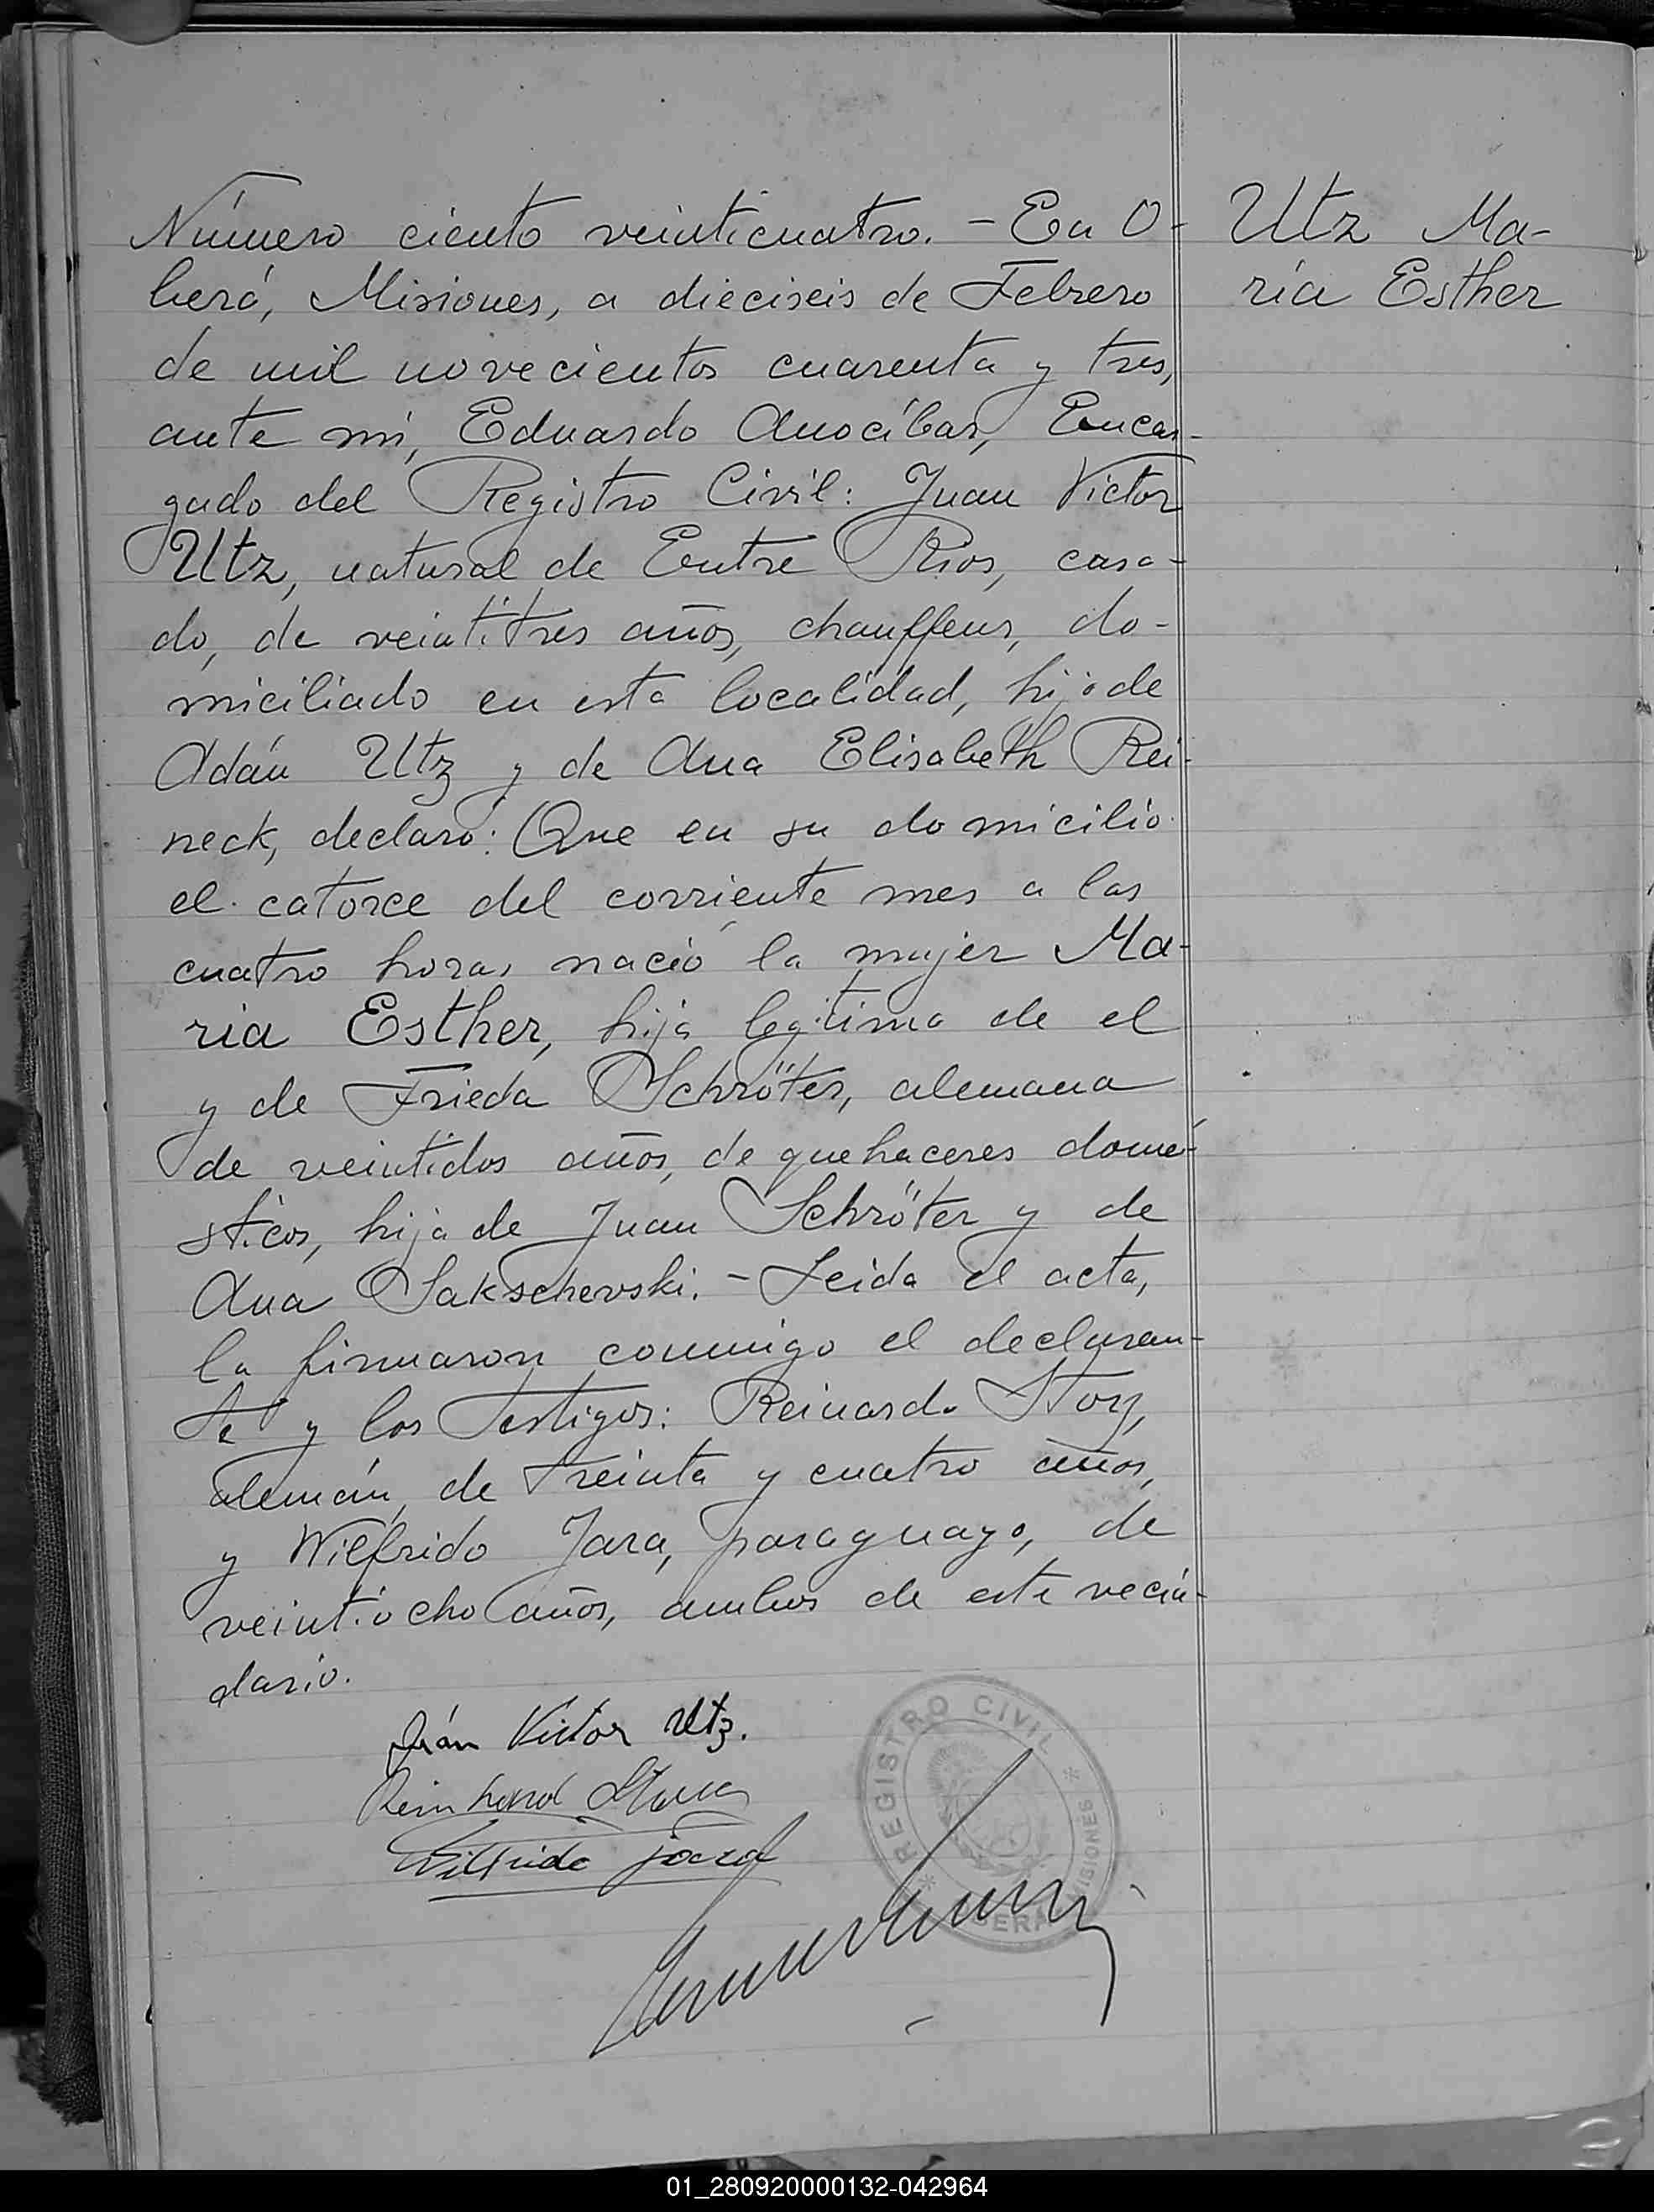 Número ciento veinticuatro. - En O-
berá, Misiones, a dieciseis de Febrero
de mil novecientos cuarenta y tres,
ante mi, Eduardo Anocíbar, Encar-
gado del Registro Civil: Juan Victor
Utz, natural de Entre Rios, casa-
do, de veintitres años, chauffeur, do-
miciliado en esta localidad, hijo de
Adán Utz y de Ana Elisabeth Rei-
neck, declaró: Que en su domicilio
el catorce del corriente mes a las
cuatro horas nació la mujer Ma-
ria Esther, hija legitima de el
y de Frieda Schröter, alemana
de veintidos años, de quehaceres domé-
sticos, hija de Juan Schröter y de
Ana Sakschevski. - Leida el acta,
la firmaron conmigo el declaran-
te y los testigos: Reinardo
alemán, de treinta y cuatro años,
y Wilfrido Jara, paraguayo, de
veintiocho años, ambos de este vecin-
dario.
Utz Ma-
ría Esther
Juán Victor Utz.
Reinhard
Wilfrido Jara
REGISTRO CIVIL
MISIONES
01_280920000132-042964